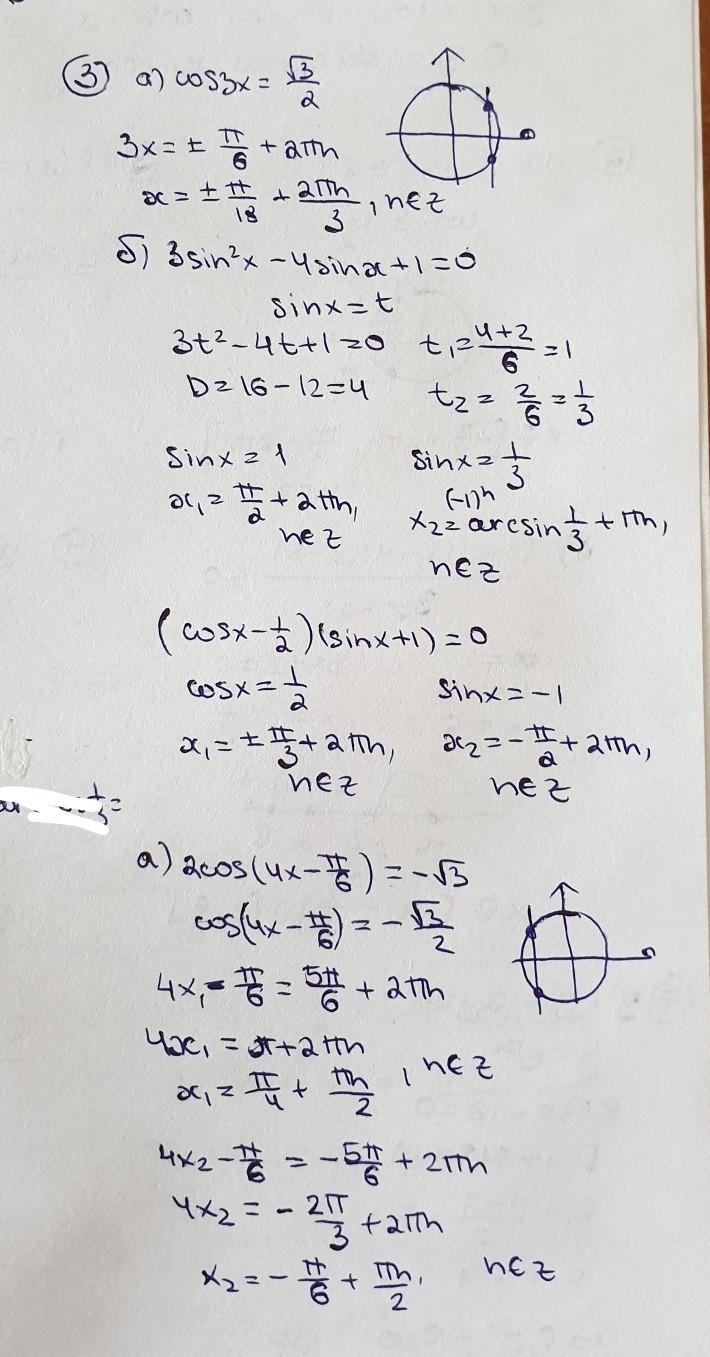 ③ а) cos3x = √3/2
3x = ± π/6 + 2πn
x = ± π/18 + 2πn/3, n∈z
б) 3sin²x - 4sinx + 1 = 0
sinx = t
3t² - 4t + 1 = 0 t₁ = (4+2)/6 = 1
D = 16 - 12 = 4 t₂ = 2/6 = 1/3
sinx = 1 sinx = 1/3
x₁ = π/2 + 2πn, n∈z x₂ = (-1)ⁿ arcsin 1/3 + πn,
n∈z
(cosx - 1/2)(sinx + 1) = 0
cosx = 1/2 sinx = -1
x₁ = ± π/3 + 2πn, x₂ = - π/2 + 2πn,
n∈z n∈z
1/3 =
а) 2cos(4x - π/6) = -√3
cos(4x - π/6) = - √3/2
4x₁ - π/6 = 5π/6 + 2πn
4x₁ = π + 2πn
x₁ = π/4 + πn/2, n∈z
4x₂ - π/6 = - 5π/6 + 2πn
4x₂ = - 2π/3 + 2πn
x₂ = - π/6 + πn/2, n∈z